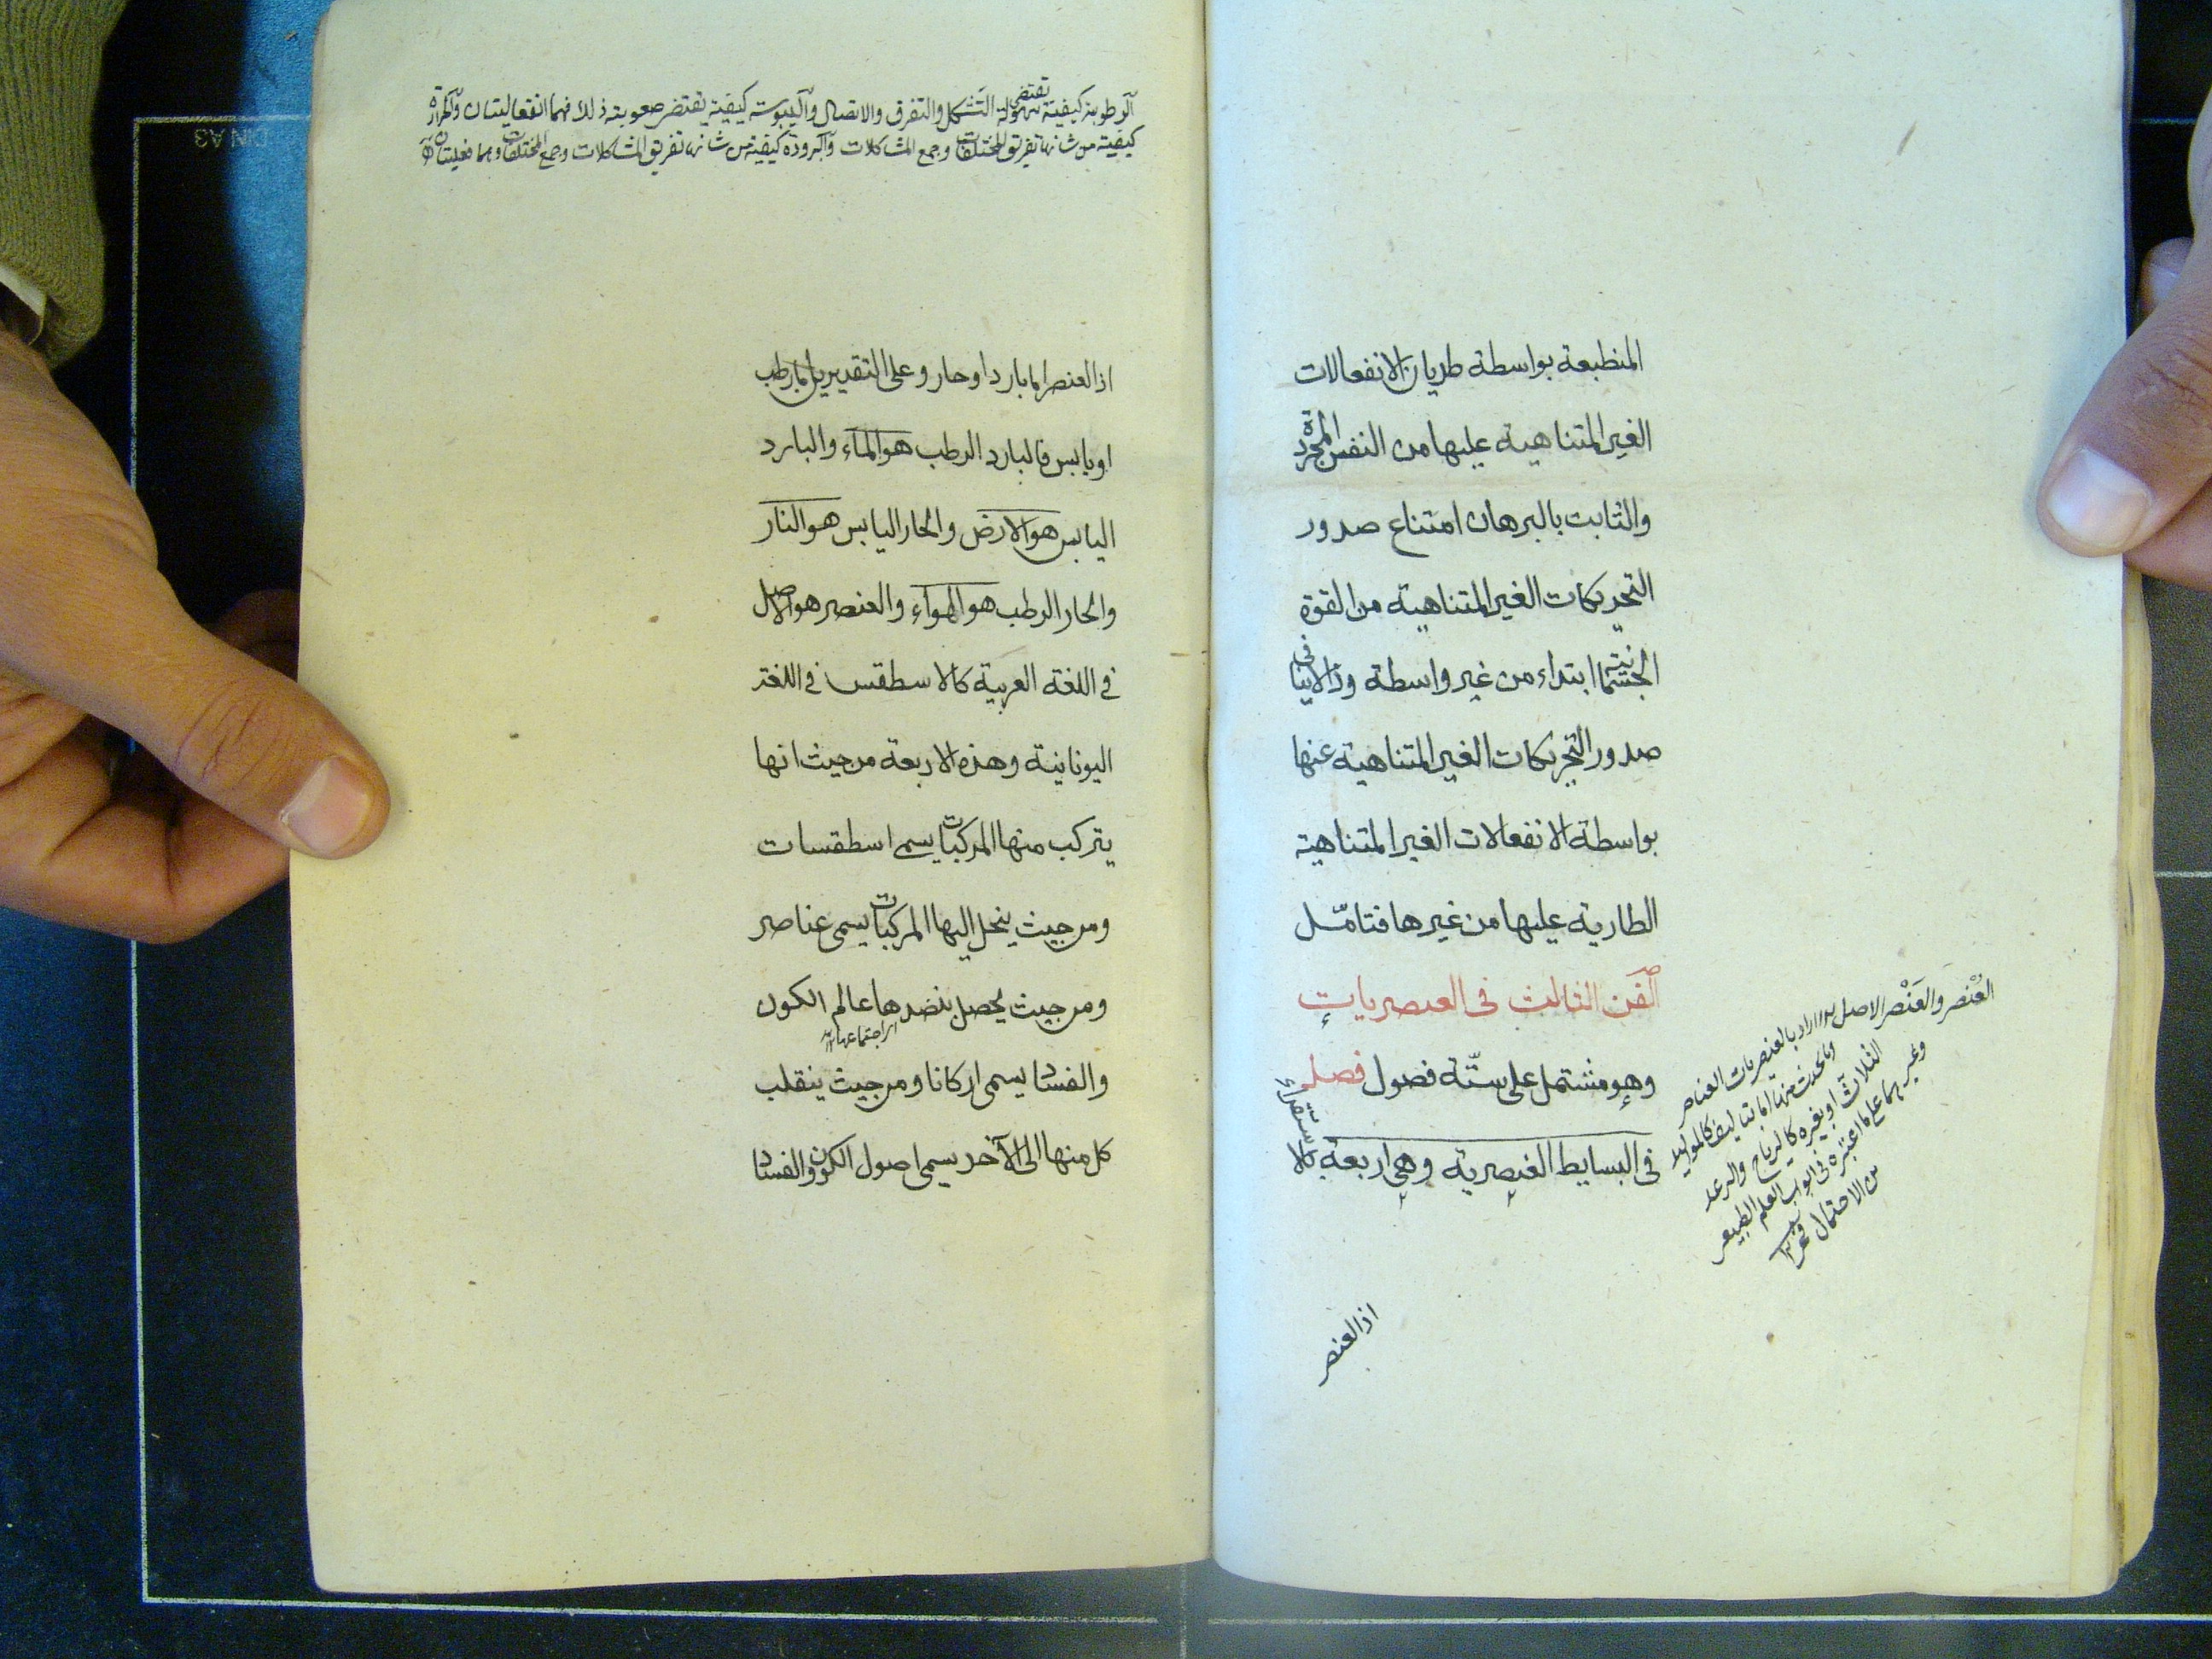 المنطبعة بواسطة طريان الانفعالات
الغير المتناهية عليها من النفس المجردة
والثابت بالبرهان امتناع صدور
التحريكات الغير المتناهية من القوة
الجسمانية ابتداء من غير واسطة وذا لاينافى
صدور التحريكات الغير المتناهية عنها
بواسطة الانفعالات الغير المتناهية
الطارية عليها من غيرها فتامّل
الفن الثالث فى العنصريات
وهو مشتمل على ستّة فصول فصل
فى البسايط العنصرية وهى اربعة بالاستقراء
العُنْصر والعَنْصر الاصل ١٢ اراد بالعنصريات العناصر
وما يحدث منها اما بتاليف كالمواليد
الثلاث او بغيره كالرياح والرعد
وغيرهما على ما اعتبره فى ابواب العلم الطبيعى
من الاحتمال
اذ العنصر
الرطوبة كيفية تقتضى سهولة التشكل والتفرق والاتصال واليبوسة كيفية يقتضى صعوبة ذلك فهما انفعاليتان والحرارة
كيفية من شانها تفريق المختلفات وجمع المشاكلات والبرودة كيفية من شانها تفريق المشاكلات وجمع المختلفات وهما فعليتان
اذ العنصر اما بارد او حار وعلى التقديرين اما رطب
او يابس فالبارد الرطب هو الماء والبارد
اليابس هو الارض والحار اليابس هو النار
والحار الرطب هو الهواء والعنصر هو الاصل
فى اللغة العربية كالاسطقس فى اللغة
اليونانية وهذه الاربعة من حيث انها
يتركب منها المركبات يسمى اسطقسات
ومن حيث ينحل اليها المركبات يسمى عناصر
ومن حيث يحصل بنضدها عالم الكون
اى اجتماعها ١٢
والفساد يسمى اركانا ومن حيث ينقلب
كل منها الى الآخر يسمى اصول الكون والفساد